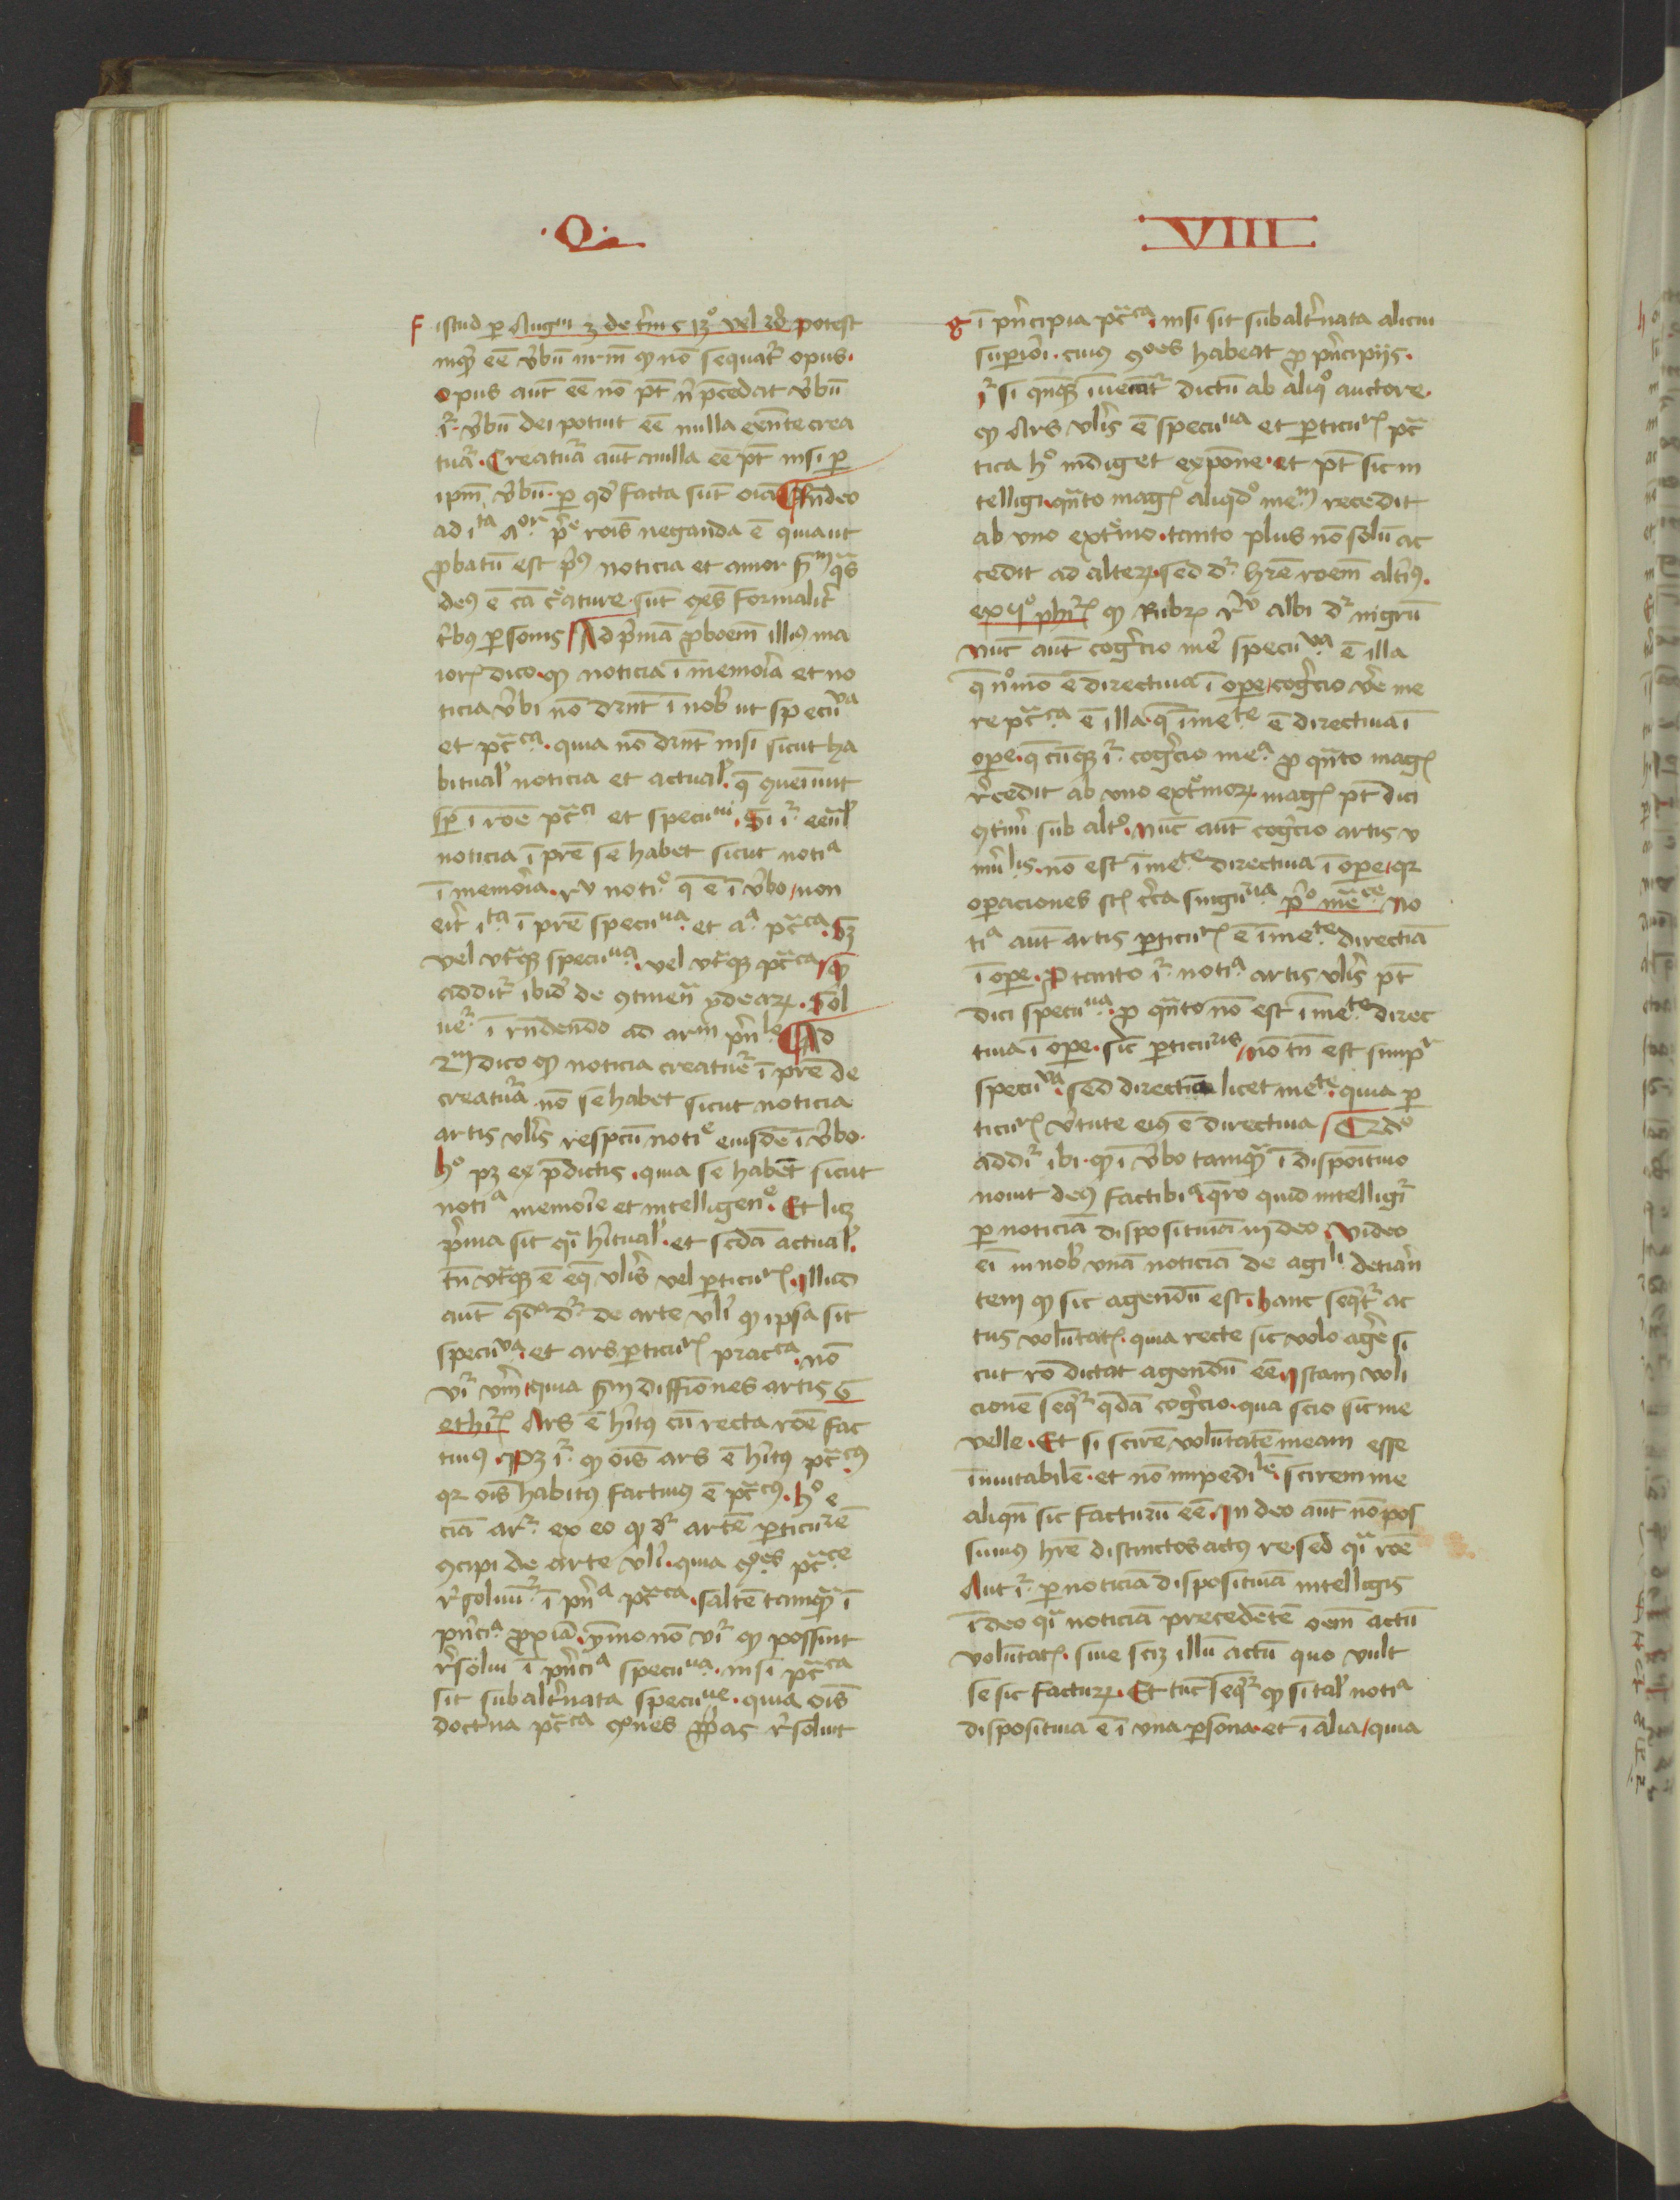 .Q.
VIII
F istud per Augm̄ 3 de tr̄mis 13° vel 28 potest
inquā eē v̄bū nrm̄ qꝫ nō sequat᷑ opus.
Opus aut̄ eē nō pt̄ n̄ p̄cedat v̄bū
i᷑. v̄bū dei potuit eē nulla eēnte crea
tur̄a. Creatur̄a aut̄ nulla eē pt̄ nisi per
ipm̄ v̄bū. per qd̄ facta sūt oīa Rn̄deo
ad ita aor. pe rōis neganda ē quia ut
probatū est prꝰ noticia et amor sm̄ qs̄
deꝰ ē cā cr̄ature sūt cōes formalit᷑
tribꝰ personis Ad p̄mā probōem̄ illiꝰ ma
ioris dico. qꝫ noticia ī memoria et no
ticia v̄bi nō dn̄t ī nob̄ ut specuua
et pc̄ca. quia nō dn̄t nisi sicut ha
bitual᷑ noticia et actual᷑. q̄ ꝯueniūt
sp̄ ī rōe pc̄ci et specuui. Si i᷑. eēnl᷑
noticia ī prē se habet sicut notia
ī memoria. rv noti°. q̄ ē ī v̄bo non
erit ita ī prē specuua. et aa. pc̄ca. sꝫ
vel vtraqꝫ specuua. vel vtraqꝫ pc̄ca qꝫ
addit᷑ ibid̄ de ꝯtinen̄ ydearꝫ. Sol
ue᷑. ī rn̄dendo ad arm pn̄le Ad
2m dico qꝫ noticia creatur̄e ī prē de
creatur̄a nō se habet sicut noticia
artis vlis̄ respcū notie eiusdē ī v̄bo.
h° pꝫ ex p̄dictis. quia se habēt sicut
notia memorie et intelligene. Et licꝫ
p̄ma sit q̄i hītual᷑. et scd̄a actual᷑.
tn̄ vtraqꝫ ē eq̄ vlis̄ vel particuris. Illud
aut̄ qd° d᷑ de arte vli qꝫ ipsa sit
specuua. et ars particuris pracca. nō
vi᷑ v̄m quia sm̄ diffiones artis 6
ethi᷑ Ars ē hītꝰ cū recta rōe fac
tiuꝰ. pꝫ i᷑. qꝫ oīs ars ē hītꝰ pc̄cꝰ
qr oīs habitꝰ factiuꝰ ē pc̄cꝰ. h° e
ciā ar᷑. ex eo qꝫ d᷑ artē particurē
ꝯcipi de arte vli. quia ꝯes pc̄ce
r̄soluūt᷑ ī pn̄a pc̄ca. saltē tamquā ī
pn̄cia. propria. ymo nō vi᷑ qꝫ possint
r̄solui ī pn̄cia specuua. nisi pc̄ca
sit subalt̄nata specuue. quia oīs
doctrina pc̄ca ꝯones proprias r̄soluit
g ī pn̄cipia pc̄ca. nisi sit subalt̄nata alicui
superiori. cuiꝰ ꝯoes habeat pro pn̄cipijs.
i᷑ si qn̄qꝫ īueniat᷑ dictū ab aliq° auctore.
qꝫ Ars vlis̄ ē specuua et particuris pc̄
tica h° indiget expōne. et pt̄ sic in
telligi. qn̄to magis aliqd° mem recedit
ab vno extremo. tanto plus nō solū ac
cedit ad alterꝫ. sed d᷑ hr̄e rōem alt̄iꝰ.
ex q° phi᷑ qꝫ Rubrꝫ rv albi d᷑ nigrū
Nūc aut̄ cogcio me᷑ specuua. ē illa
q̄ n°mo ē directiua ī ope. cogcio v̄e me
re pc̄ca ē illa. q̄ īmete ē directiua ī
ope. q̄ cūqꝫ i᷑. cogcio mea. pro qn̄to magis
r̄cedit ab vno extremorꝫ. magis pt̄ dici
ꝯtineri sub alt°. Nūc aut̄ cogcio artis v
niūlis. nō est īmete directiua ī ope. qr
operaciones st̄ circa singuua. p°mece. No
tia aut̄ artis particuris ē īmete directiua
ī ope. P tanto i᷑ notia artis vlis̄ pt̄
dici specuua. pro qn̄to nō est īmete direc
tiua ī ope. sic particuris. nō tn̄ est simpr
specuua. sed directiua licet mete. quia par
ticuris v̄tute eiꝰ ē directiua 2d°
addi᷑ ibi. qꝫ ī v̄bo tamquā ī dispoitiuo
nouit deꝰ factibia. q̄ro quid intelligi᷑
per noticiā dispositiuā in deo Video
ei̅ in nob̄ vnā noticiā de agili detiān
tem qꝫ sic agendū est. hanc seqt᷑ ac
tus voluntatis. quia recte sic volo agere si
cut rō dictat agendū eē. Istam voli
cionē seqt᷑ qd̄ā cogcio. qua scio sic me
velle. Et si scirē volūtatē meam esse
īmutabilē. et nō impedile. scirem me
aliqn̄ sic facturū eē. In deo aut̄ nō pos
sumꝰ hr̄e distinctos actꝰ re. sed q̄i rōe
Aut i᷑. per noticiā dispositiuā intelligis
ī deo q̄i noticiā precedētē oēm actū
voluntatis. siue scꝫ illū actū quo vult
se sic facturꝫ. Et tūc seqt᷑ qꝫ si tal᷑ notia
dispositiua ē ī vna persona. et ī alia quia